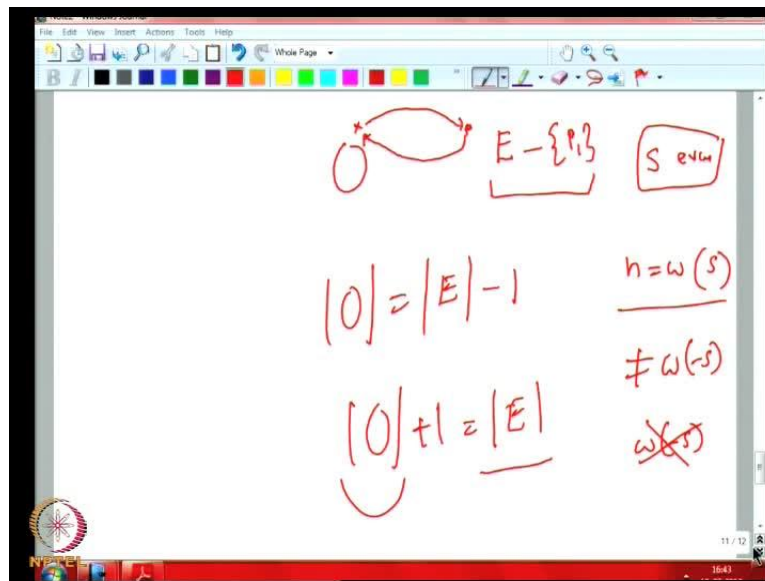 File Edit View Insert Actions Tools Help
Whole Page
B I
O E - {P₁} S even
|O| = |E| - 1
n = ω(S)
≠ ω(-S)
|O| + 1 = |E|
ω(-S)
11 / 12
NPTEL
16:43